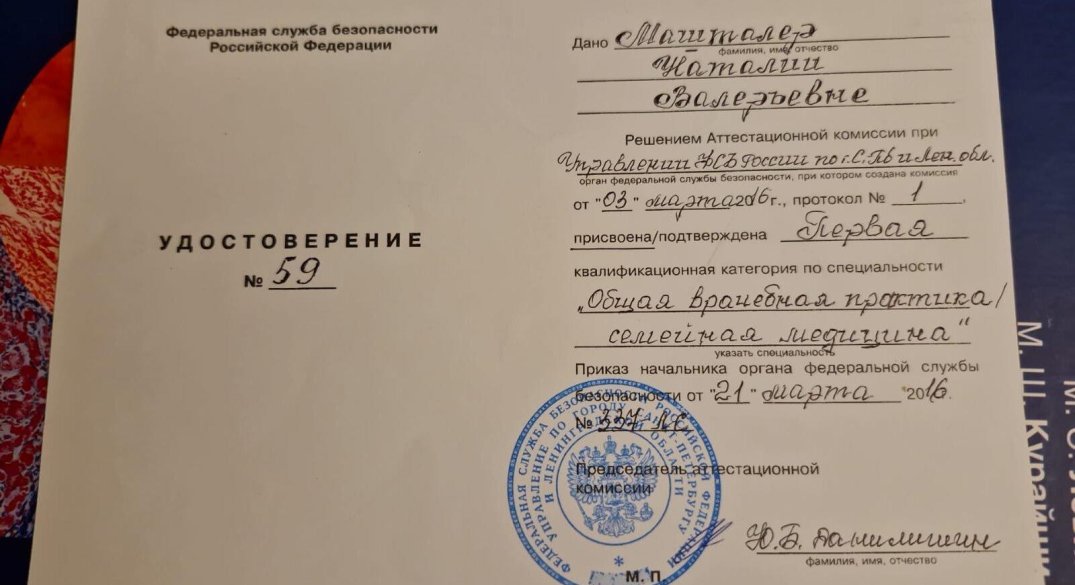 Федеральная служба безопасности
Российской Федерации
УДОСТОВЕРЕНИЕ
№ 59
Дано Машталер
фамилия, имя, отчество
Наталии
Валерьевне
Решением Аттестационной комиссии при
Управлении ФСБ России по г. С.Пб и Лен. обл.
орган федеральной службы безопасности, при котором создана комиссия
от "03" марта 2016 г., протокол № 1
присвоена/подтверждена Первая
квалификационная категория по специальности
„Общая врачебная практика/
семейная медицина"
указать специальность
Приказ начальника органа федеральной службы
безопасности от "21" марта 2016.
№ 337 ЛС
Председатель аттестационной
комиссии
Ю.Б. Данилишин
фамилия, имя, отчество
М.П
ФЕДЕРАЛЬНАЯ СЛУЖБА БЕЗОПАСНОСТИ РОССИЙСКОЙ ФЕДЕРАЦИИ
УПРАВЛЕНИЕ ПО ГОРОДУ САНКТ-ПЕТЕРБУРГУ
И ЛЕНИНГРАДСКОЙ ОБЛАСТИ